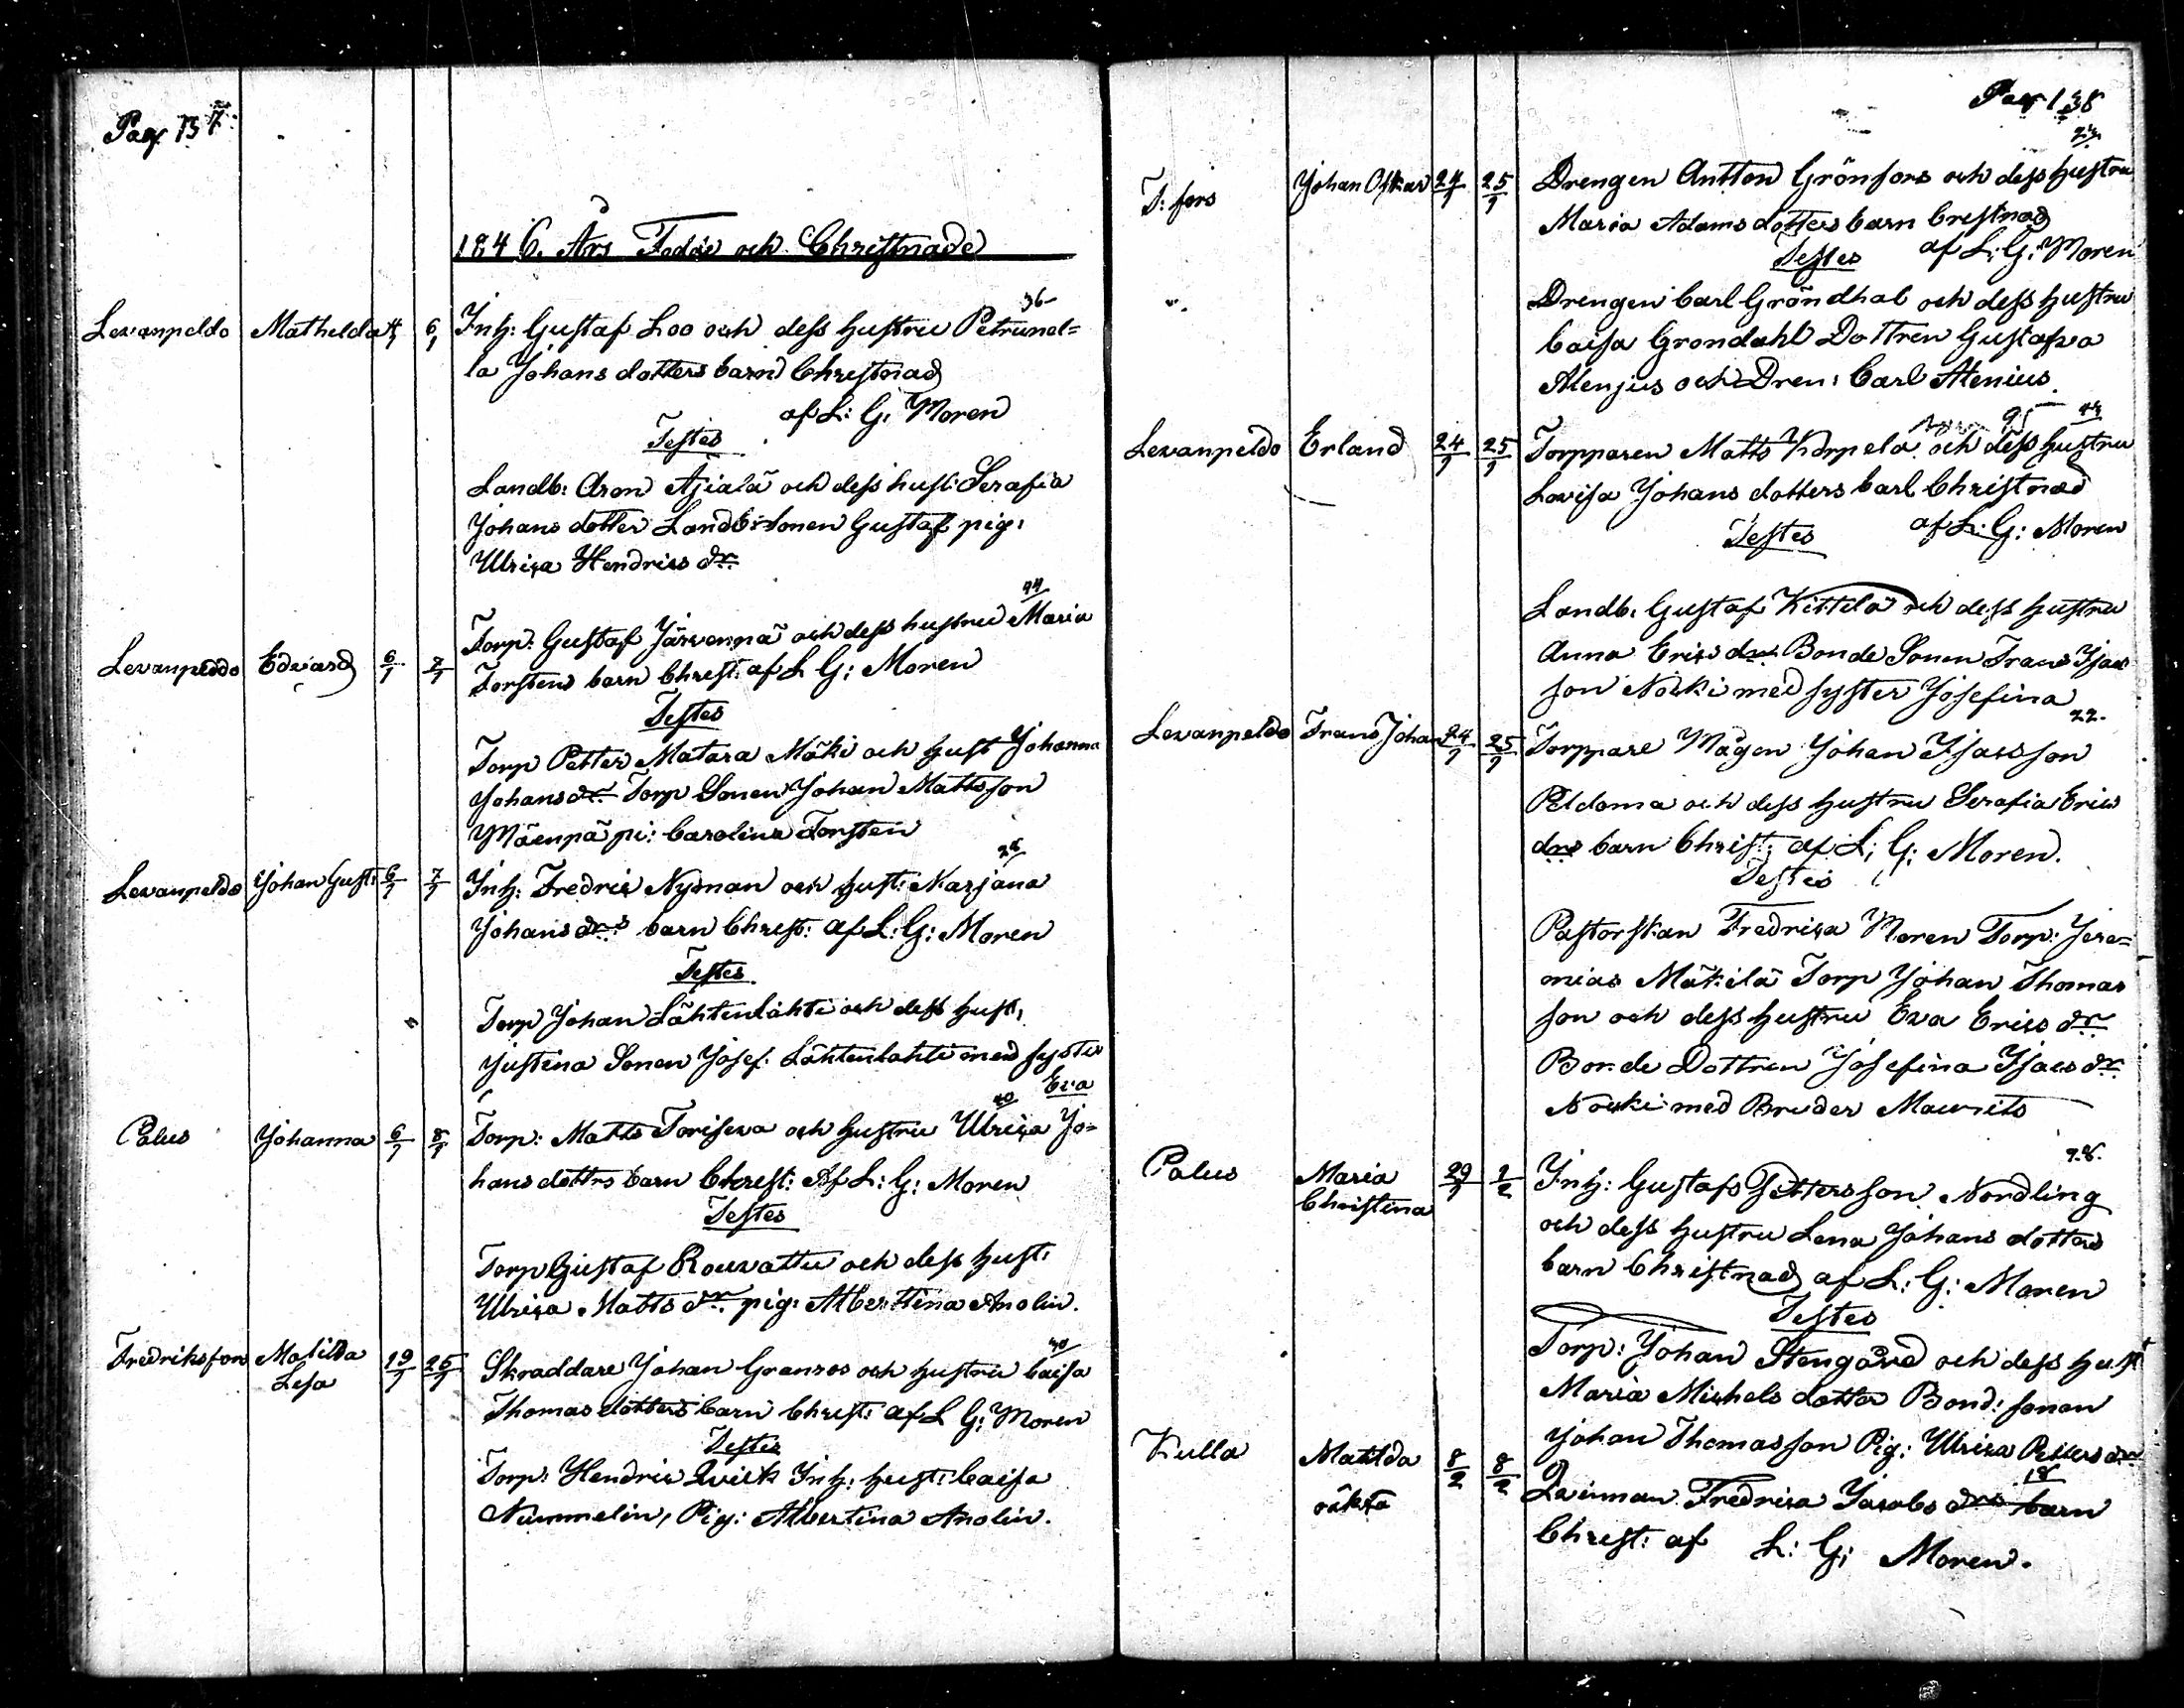 Pag 137.
1846. Års Födde och Christnade
36
Levanpeldo Mathilda 4/1 6/1 Inh: Gustaf Loo och dess hustru Petrunel=
la Johans dotters barn Christnad
af L: G: Moren
Testes
Landb: Aron Äjiälä och dess hust: Serafia
Johans dotter Landb: Sonen Gustaf pig:
Ulrica Hendrics dr
44
Torp: Gustaf Järvenpä och dess hustru Maria
Levanpeldo Edvard 6/1 7/1 Torstens barn Christ: af L G: Moren
Testes
Torp Petter Matara Mäki och hust Johanna
Johansdr Torp Sonen Johan Mattsson
Mäenpä pi: Carolina Torsten
Levanpeldo Johan Gust: 6/1 7/1 Inh: Fredric Nyman och hust: Marjana
Johans drs barn Christ: af L: G: Moren
Testes
Torp Johan Lähtenlähti och dess hust:
Justina Sonen Josef Lähtenlahti med syster
Eva
40
Palus Johanna 6/1 8/1 Torp: Matts Toriseva och hustru Ulrica Jo=
hans dottrs barn Christ: Af L: G: Moren
Testes
Torp Gustaf Rouvattu och dess hust:
Ulrica Matts dr pig: Albertina Anolin.
40
Fredriksfors Matilda 19/1 25/1 Skraddare Johan Granros och hustru Caisa
Lesa
Thomas dotters barn Christ: af L G: Moren
Testes
Torp: Hendric Qvick Inh: hust: Caisa
Nummelin, Pig: Albertina Anolin.
Pag 138
T: fors Johan Oskar 24/1 25/1 Drengen Antton Grönfors och dess hustru
Maria Adams dotters barn Crestnad
Testes af L: G: Moren
Drengen Carl Gröndhal och dess hustru
Caisa Grondahl Dottren Gustafva
Alenjus och Dren: Carl Alenius.
Levanpeldo Erland 24/1 25/1 Torpparen Matts Korpela och dess hustru
Lovisa Johans dotters barl Christnad
Testes af L: G: Moren
Landb: Gustaf Kittila och dess hustru
Anna Erics dr Bonde Sonen Frans Isacs
son Noski med syster Josefina
22.
Levanpeldo Frans Johan 24/1 25/1 Torppare Mågen Johan Isacsson
Peldoma och dess hustru Serafia Erics
drs barn Christ: af L: G: Moren.
Testes
Pastorskan Fredrica Moren Torp: Jere=
mias Mäkilä Torp Johan Thomas
son och dess hustru Eva Erics dr
Bonde Dottren Josefina Isacs dr
Noski med Bruder Maurits
28.
Palus Maria 29/1 1/2 Inh: Gustaf Pettersson Nordling
Christina
och dess hustru Lena Johans dotters
barn Christnad af L: G: Moren
Testes
Torp: Johan Stengård och dess hust
Maria Michels dotter Bond: sonen
Johan Thomasson Pig: Ulrica Petters dr
18
Kulla Matilda 8/2 8/2 Qvinman Fredrica Jacobs drs barn
oäkta
Christ: af L: G: Moren.